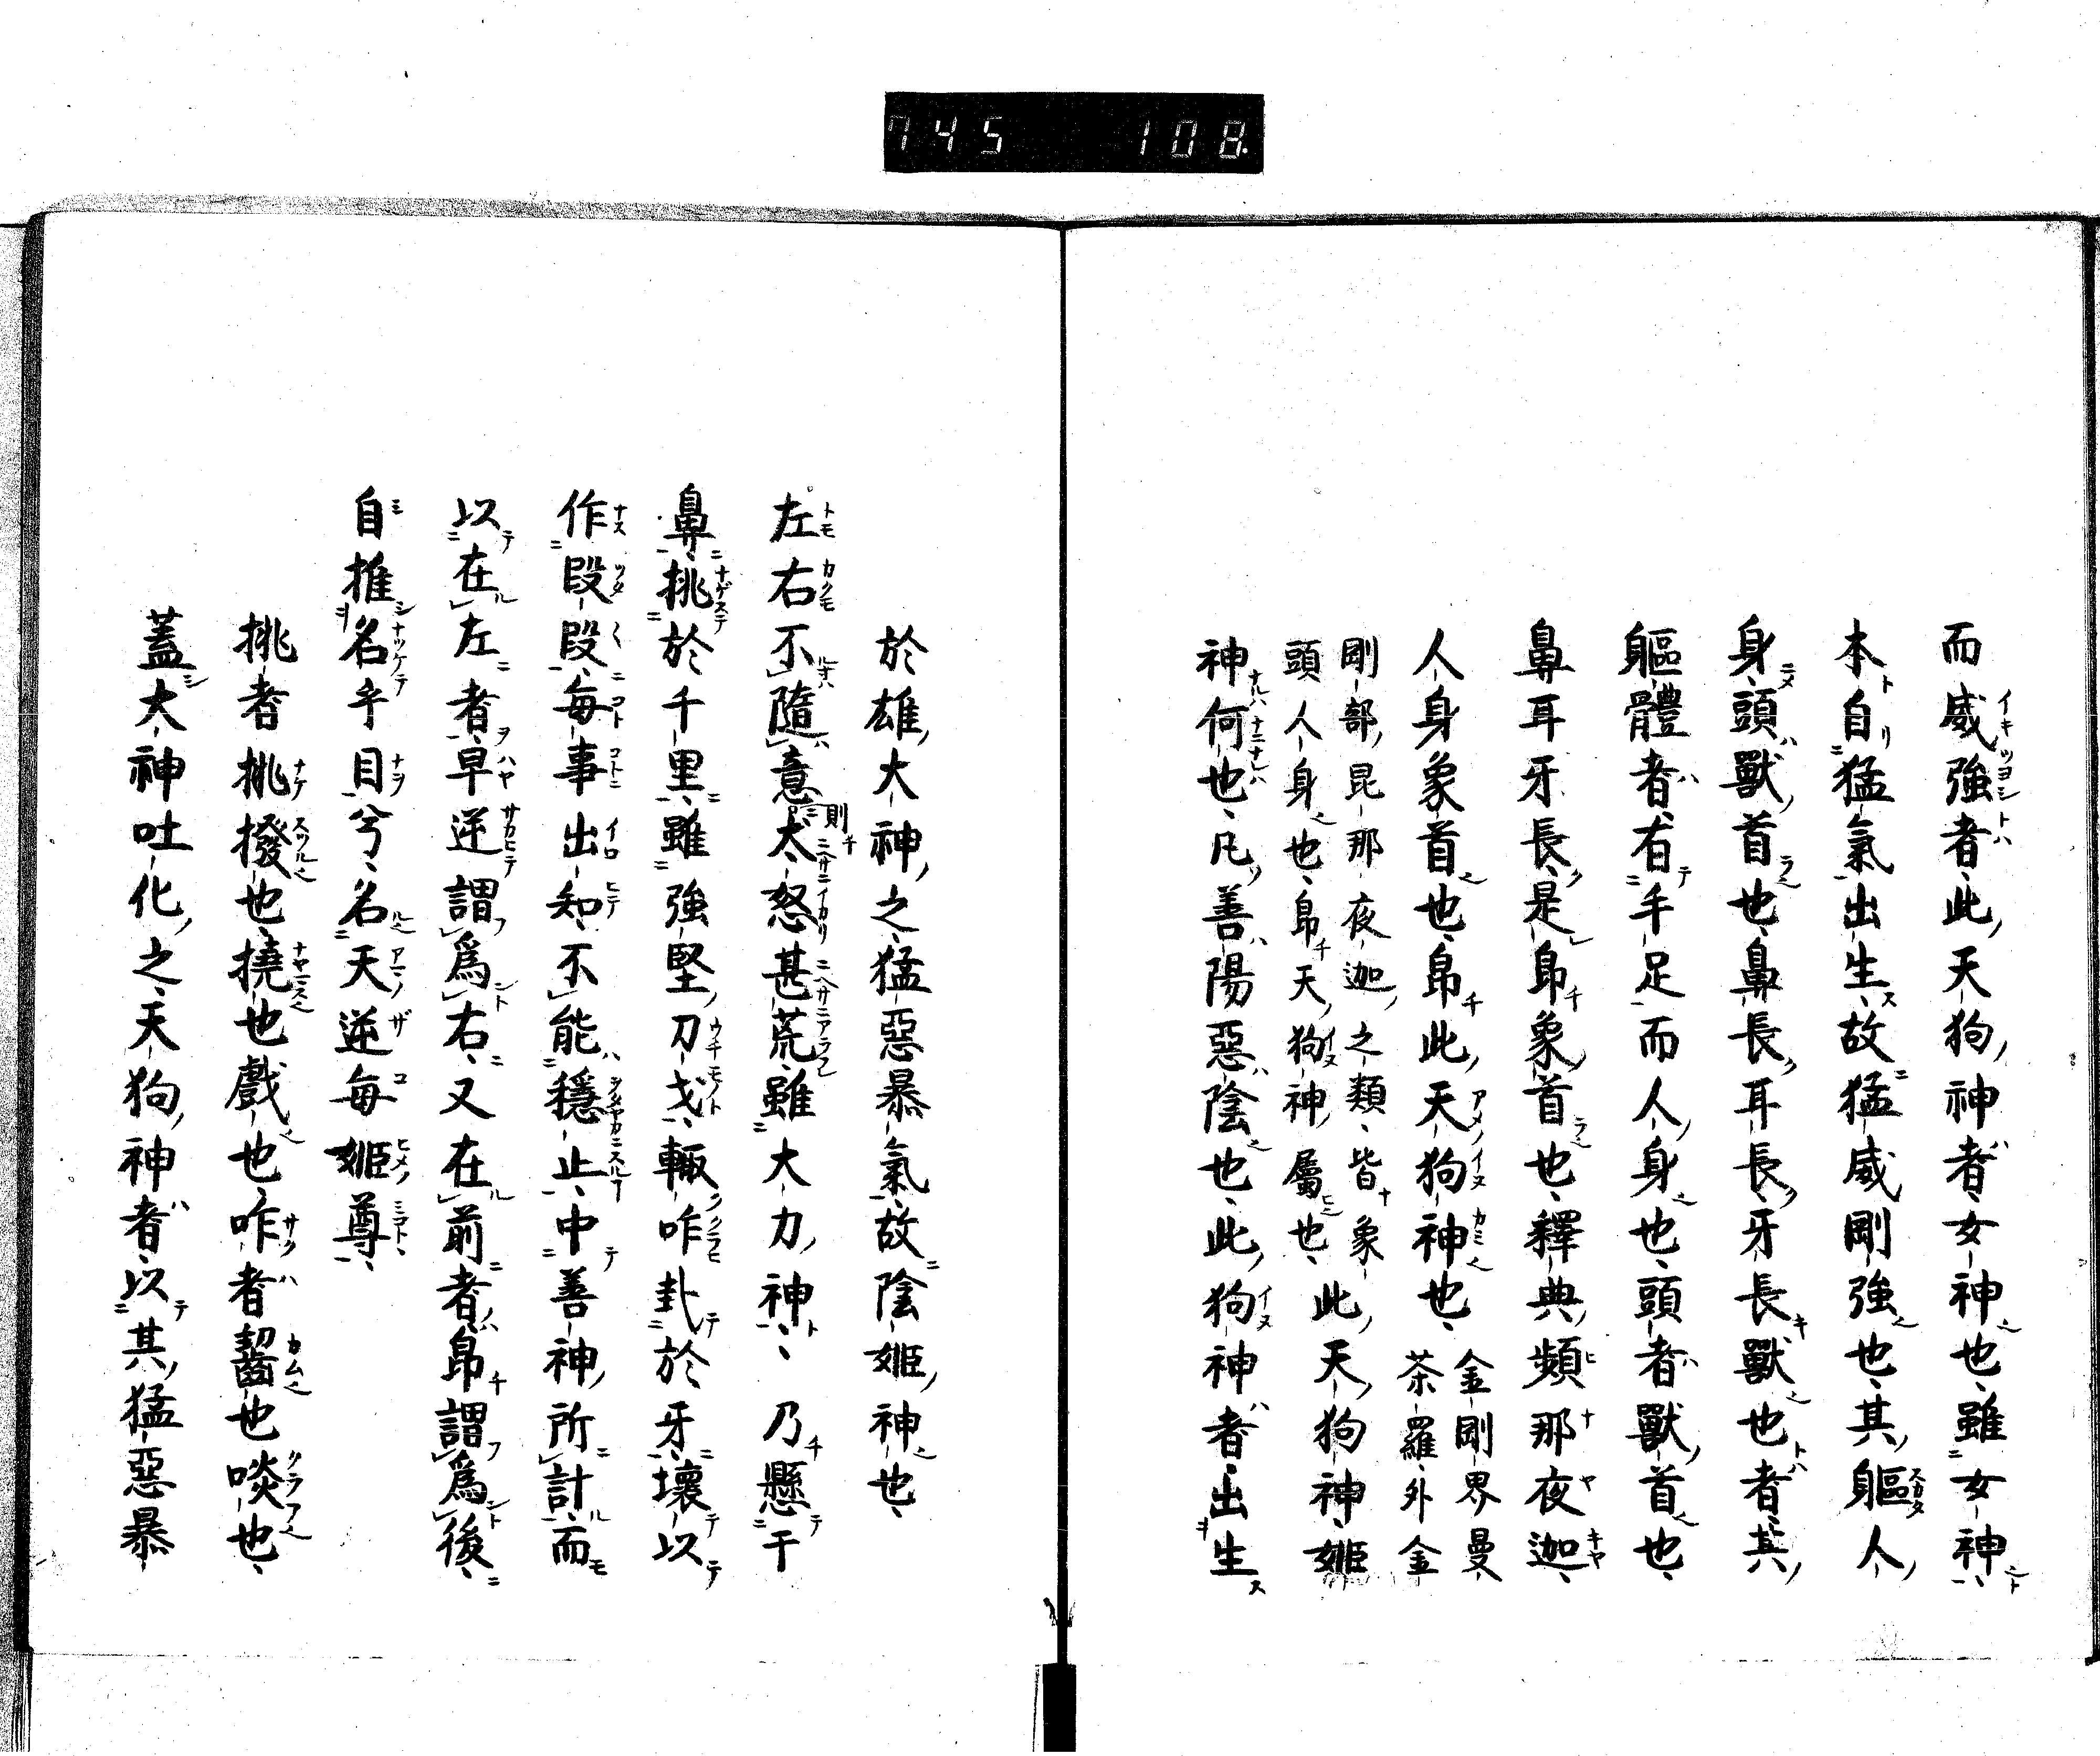 745 108
而威強者此天狗神者女神也雖女神
本自猛氣出生故猛威剛強也其軀人
身頭獸首也鼻長耳長牙長獸也者其
軀體者右手足而人身也頭者獸首也
鼻耳牙長是卽象首也釋典頻那夜迦
人身象首也卽此天狗神也金剛界曼
荼羅外金
剛部昆那夜迦之類皆象
頭人身也卽天狗神屬也此天狗神姬
神何也凡善陽惡陰也此狗神者出生
於雄大神之猛惡暴氣故陰姬神也
左右不隨意則太怒甚荒雖大力神乃懸于
鼻挑於千里雖強堅刀戈輙咋卦於牙壞以
作段段每事出知不能穩止中善神所計而
以在左者早逆謂爲右又在前者卽謂爲後
自推名乎目兮名天逆每姬尊
挑者挑撥也撓也戲也咋者齧也啖也
蓋大神吐化之天狗神者以其猛惡暴